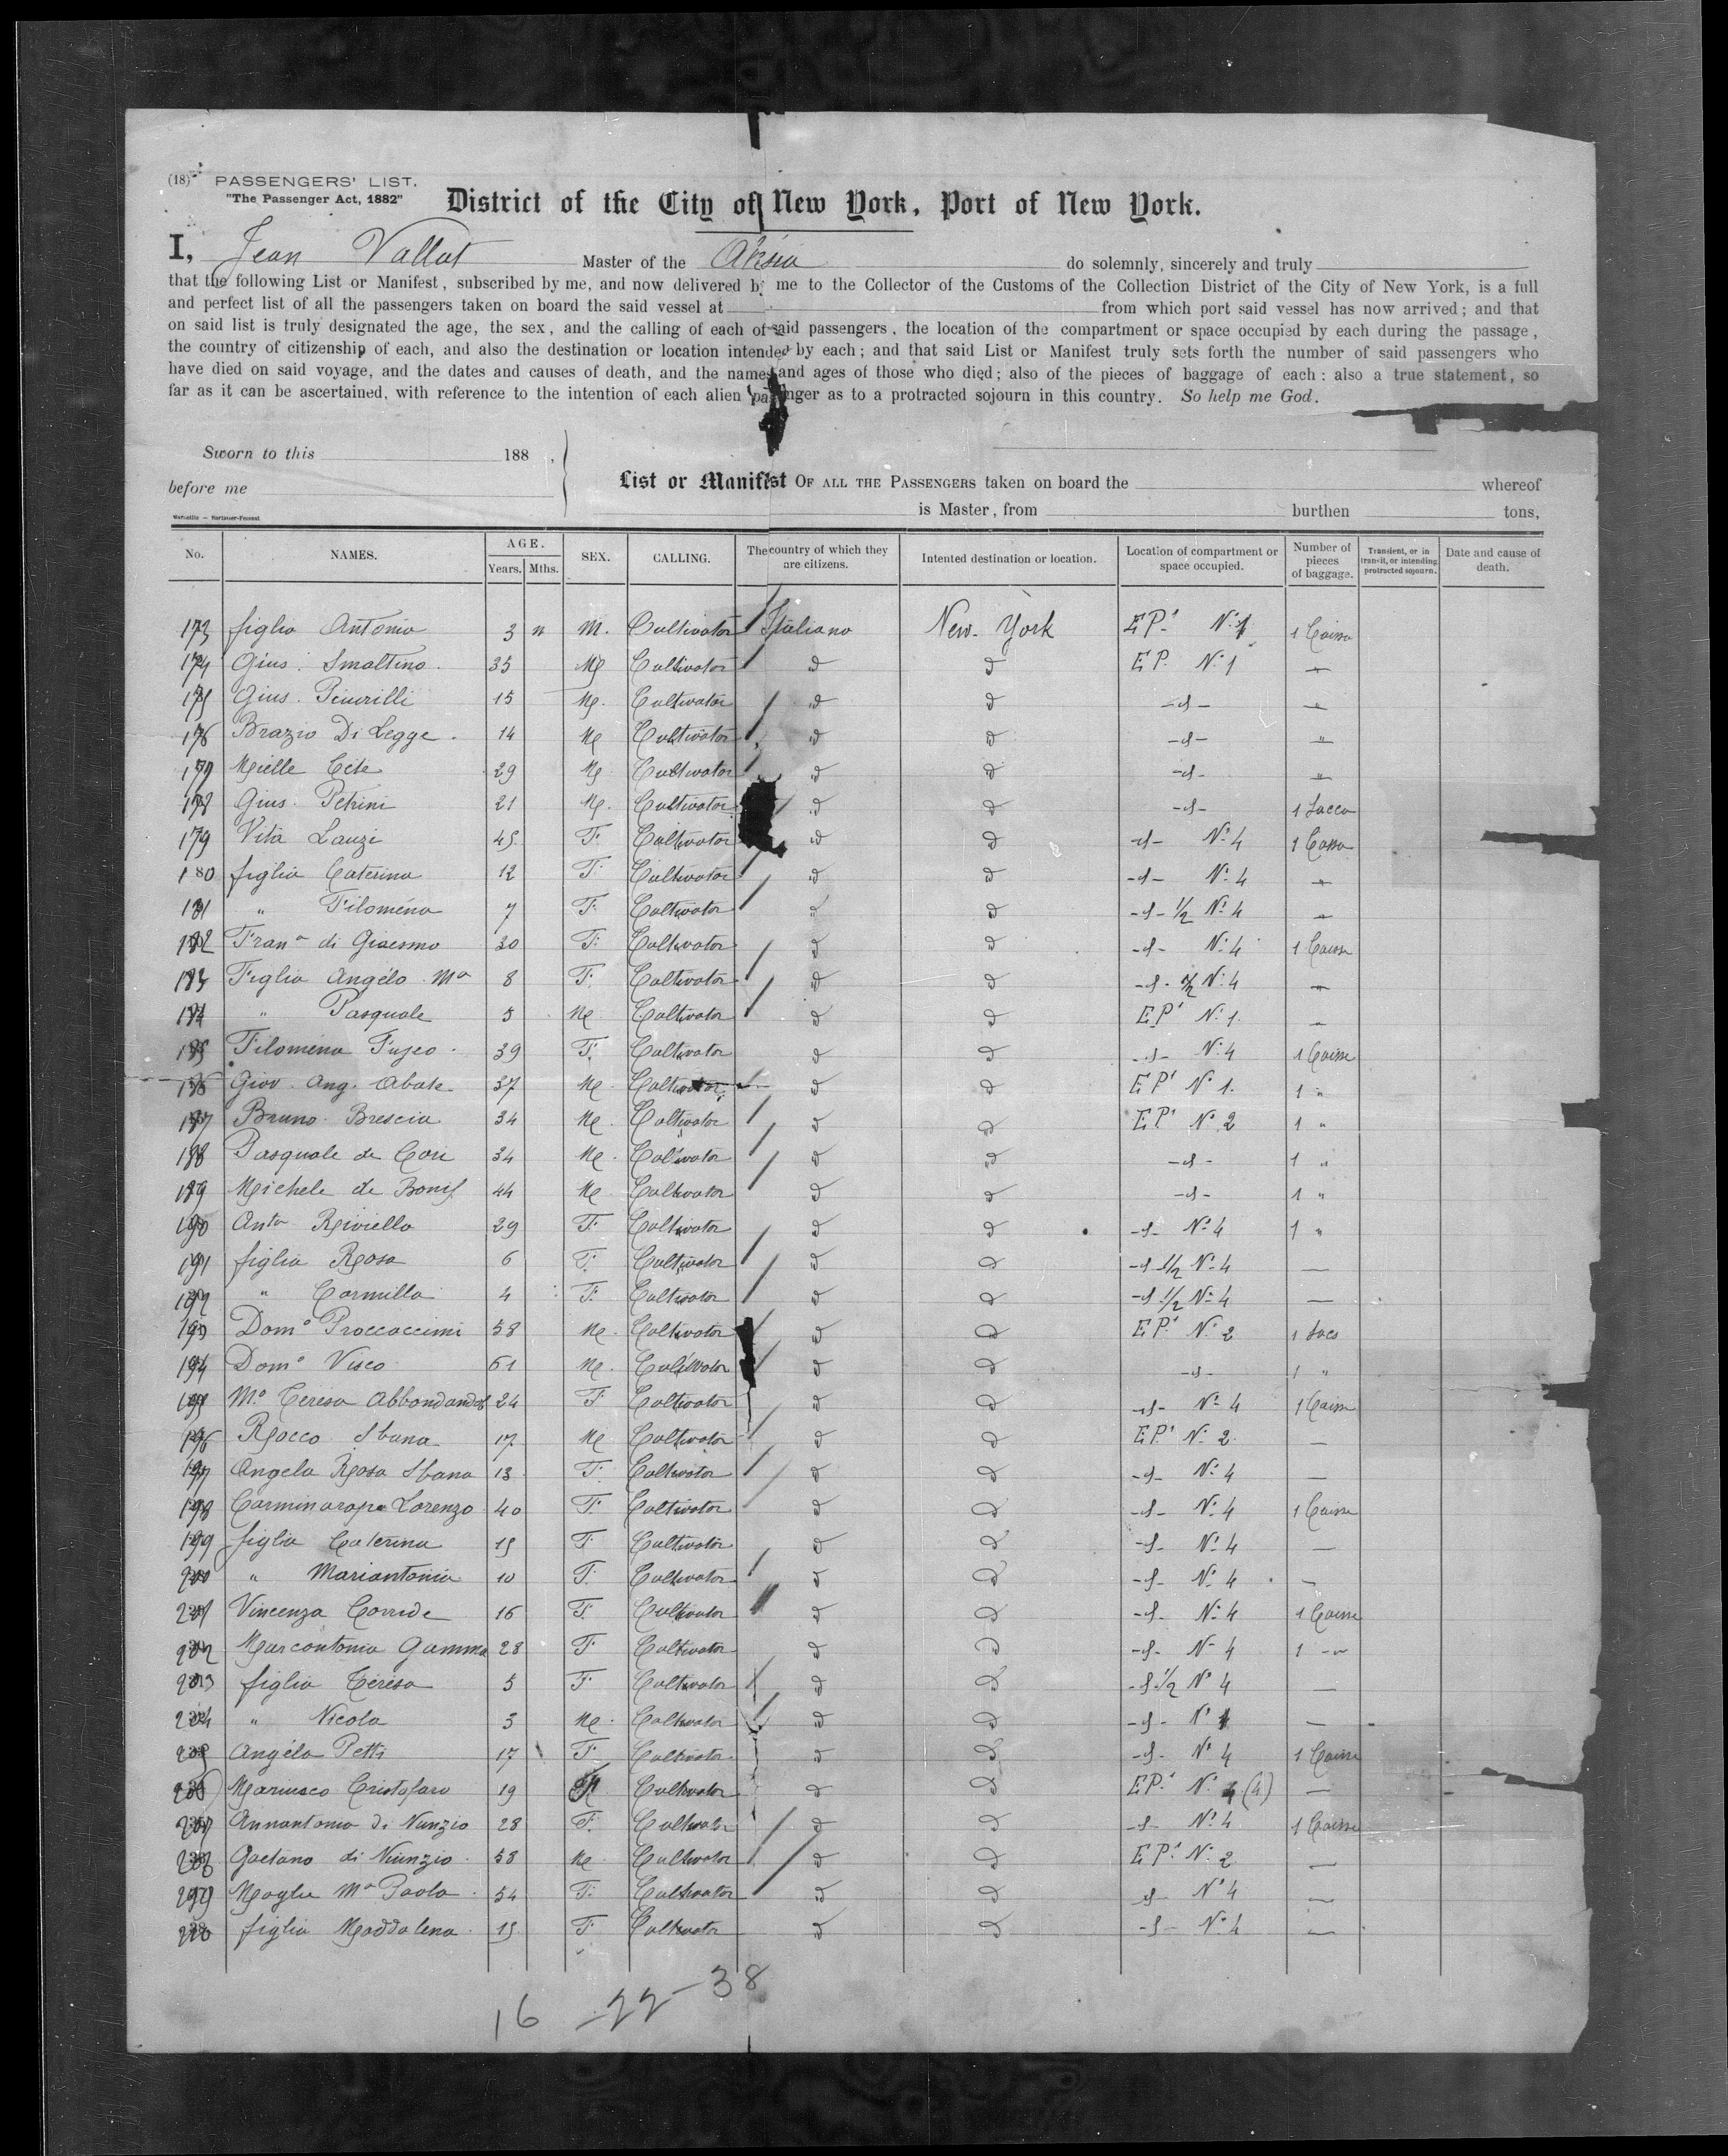 (18) PASSENGERS' LIST.
"The Passenger Act, 1882"
District of the City of New York, Port of New York.
I, Jean Vallat Master of the Alesia do solemnly, sincerely and truly
that the following List or Manifest, subscribed by me, and now delivered by me to the Collector of the Customs of the Collection District of the City of New York, is a full
and perfect list of all the passengers taken on board the said vessel at from which port said vessel has now arrived; and that
on said list is truly designated the age, the sex, and the calling of each of said passengers, the location of the compartment or space occupied by each during the passage,
the country of citizenship of each, and also the destination or location intended by each; and that said List or Manifest truly sets forth the number of said passengers who
have died on said voyage, and the dates and causes of death, and the names and ages of those who died; also of the pieces of baggage of each: also a true statement, so
far as it can be ascertained, with reference to the intention of each alien passenger as to a protracted sojourn in this country. So help me God.
Sworn to this 188 .
before me
List or Manifest OF ALL THE PASSENGERS taken on board the whereof
is Master, from burthen tons,
No. NAMES. AGE. Years. Mths. SEX. CALLING. The country of which they are citizens. Intented destination or location. Location of compartment or space occupied. Number of pieces of baggage. Transient, or in transit, or intending protracted sojourn. Date and cause of death.
173 figlio Antonio 3 n M. Cultivator Italiano New-York EP.t N.1 1 Caisse
174 Gius. Smaltino 35 M Cultivator d d EP. N.1 "
175 Gius. 15 M. Cultivator d d -d- "
176 Brazio Di Legge 14 M Cultivator d d -d- "
177 Cete 29 M Cultivator d d -d- "
178 Gius. Petrini 21 M. Cultivator d d -d- 1 Sacco
179 Vita Lauzi 45 F. Cultivator d d -d- N.4 1 Cassa
180 figlia Caterina 12 F. Cultivator d d -d- N.4 "
181 " Filomena 7 F. Cultivator d d -d- 1/2 N.4 "
182 Fran.a di Giacomo 30 F. Cultivator d d -d- N.4 1 Caisse
183 Figlia Angéla M.a 8 F. Cultivator d d -d- 1/2 N.4 "
184 " Pasquale 5 M Cultivator d d EP.t N.1. "
185 Filomena Fuseo 39 F. Cultivator d d -d- N.4 1 Caisse
186 Giov. Ang. Abate 37 M Cultivator d d EP.t N.1. 1 "
187 Bruno Brescia 34 M Cultivator d d EP.t N.2 1 "
188 Pasquale de Cori 34 M Cultivator d d -d- 1 "
189 Michele de Bonis 44 M Cultivator d d -d- 1 "
190 Ant.a Riviello 29 F. Cultivator d d -d- N.4 1 "
191 figlia Rosa 6 F. Cultivator d d -d- 1/2 N.4 —
192 " Carmilla 4 F. Cultivator d d -d- 1/2 N.4 —
193 Dom.o Proccaccimi 58 M. Cultivator d d EP.t N.2 1 Sacs
194 Dom.o Visco 61 M. Cultivator d d -d- 1 "
195 M.a Teresa 24 F Cultivator d d -d- N.4 1 Caisse
196 Rocco Sbana 17 M Cultivator d d EP.t N.2 —
197 Angela Rosa Sbana 13 F. Cultivator d d -d- N.4 —
198 Lorenzo 40 F. Cultivator d d -d- N.4 1 Caisse
199 figlia Caterina 15 F. Cultivator d d -d- N.4 —
200 " Mariantonia 10 F. Cultivator d d -d- N.4 —
201 Vincenza Corride 16 F. Cultivator d d -d- N.4 1 Caisse
202 Marcantonia Gamma 28 F Cultivator d d -d- N.4 1 -"
203 figlia Teresa 5 F Cultivator d d -d- 1/2 N.4 —
204 " Nicola 3 M. Cultivator d d -d- N. —
205 Angéla Petti 17 F Cultivator d d -d- N.4 1 Caisse
206 Cristofaro 19 Cultivator d d EP.t N. 4 (4) —
207 Annantonia di Nunzio 28 F. Cultivator d d -d- N.4 1 Caisse
208 Gaetano di Nunzio 58 M Cultivator d d EP.t N.2 —
209 Moglie M.a Paola 54 F. Cultivator d d -d- N.4 —
210 figlia Maddalena 15 F Cultivator d d -d- N.4 —
16 -22-38